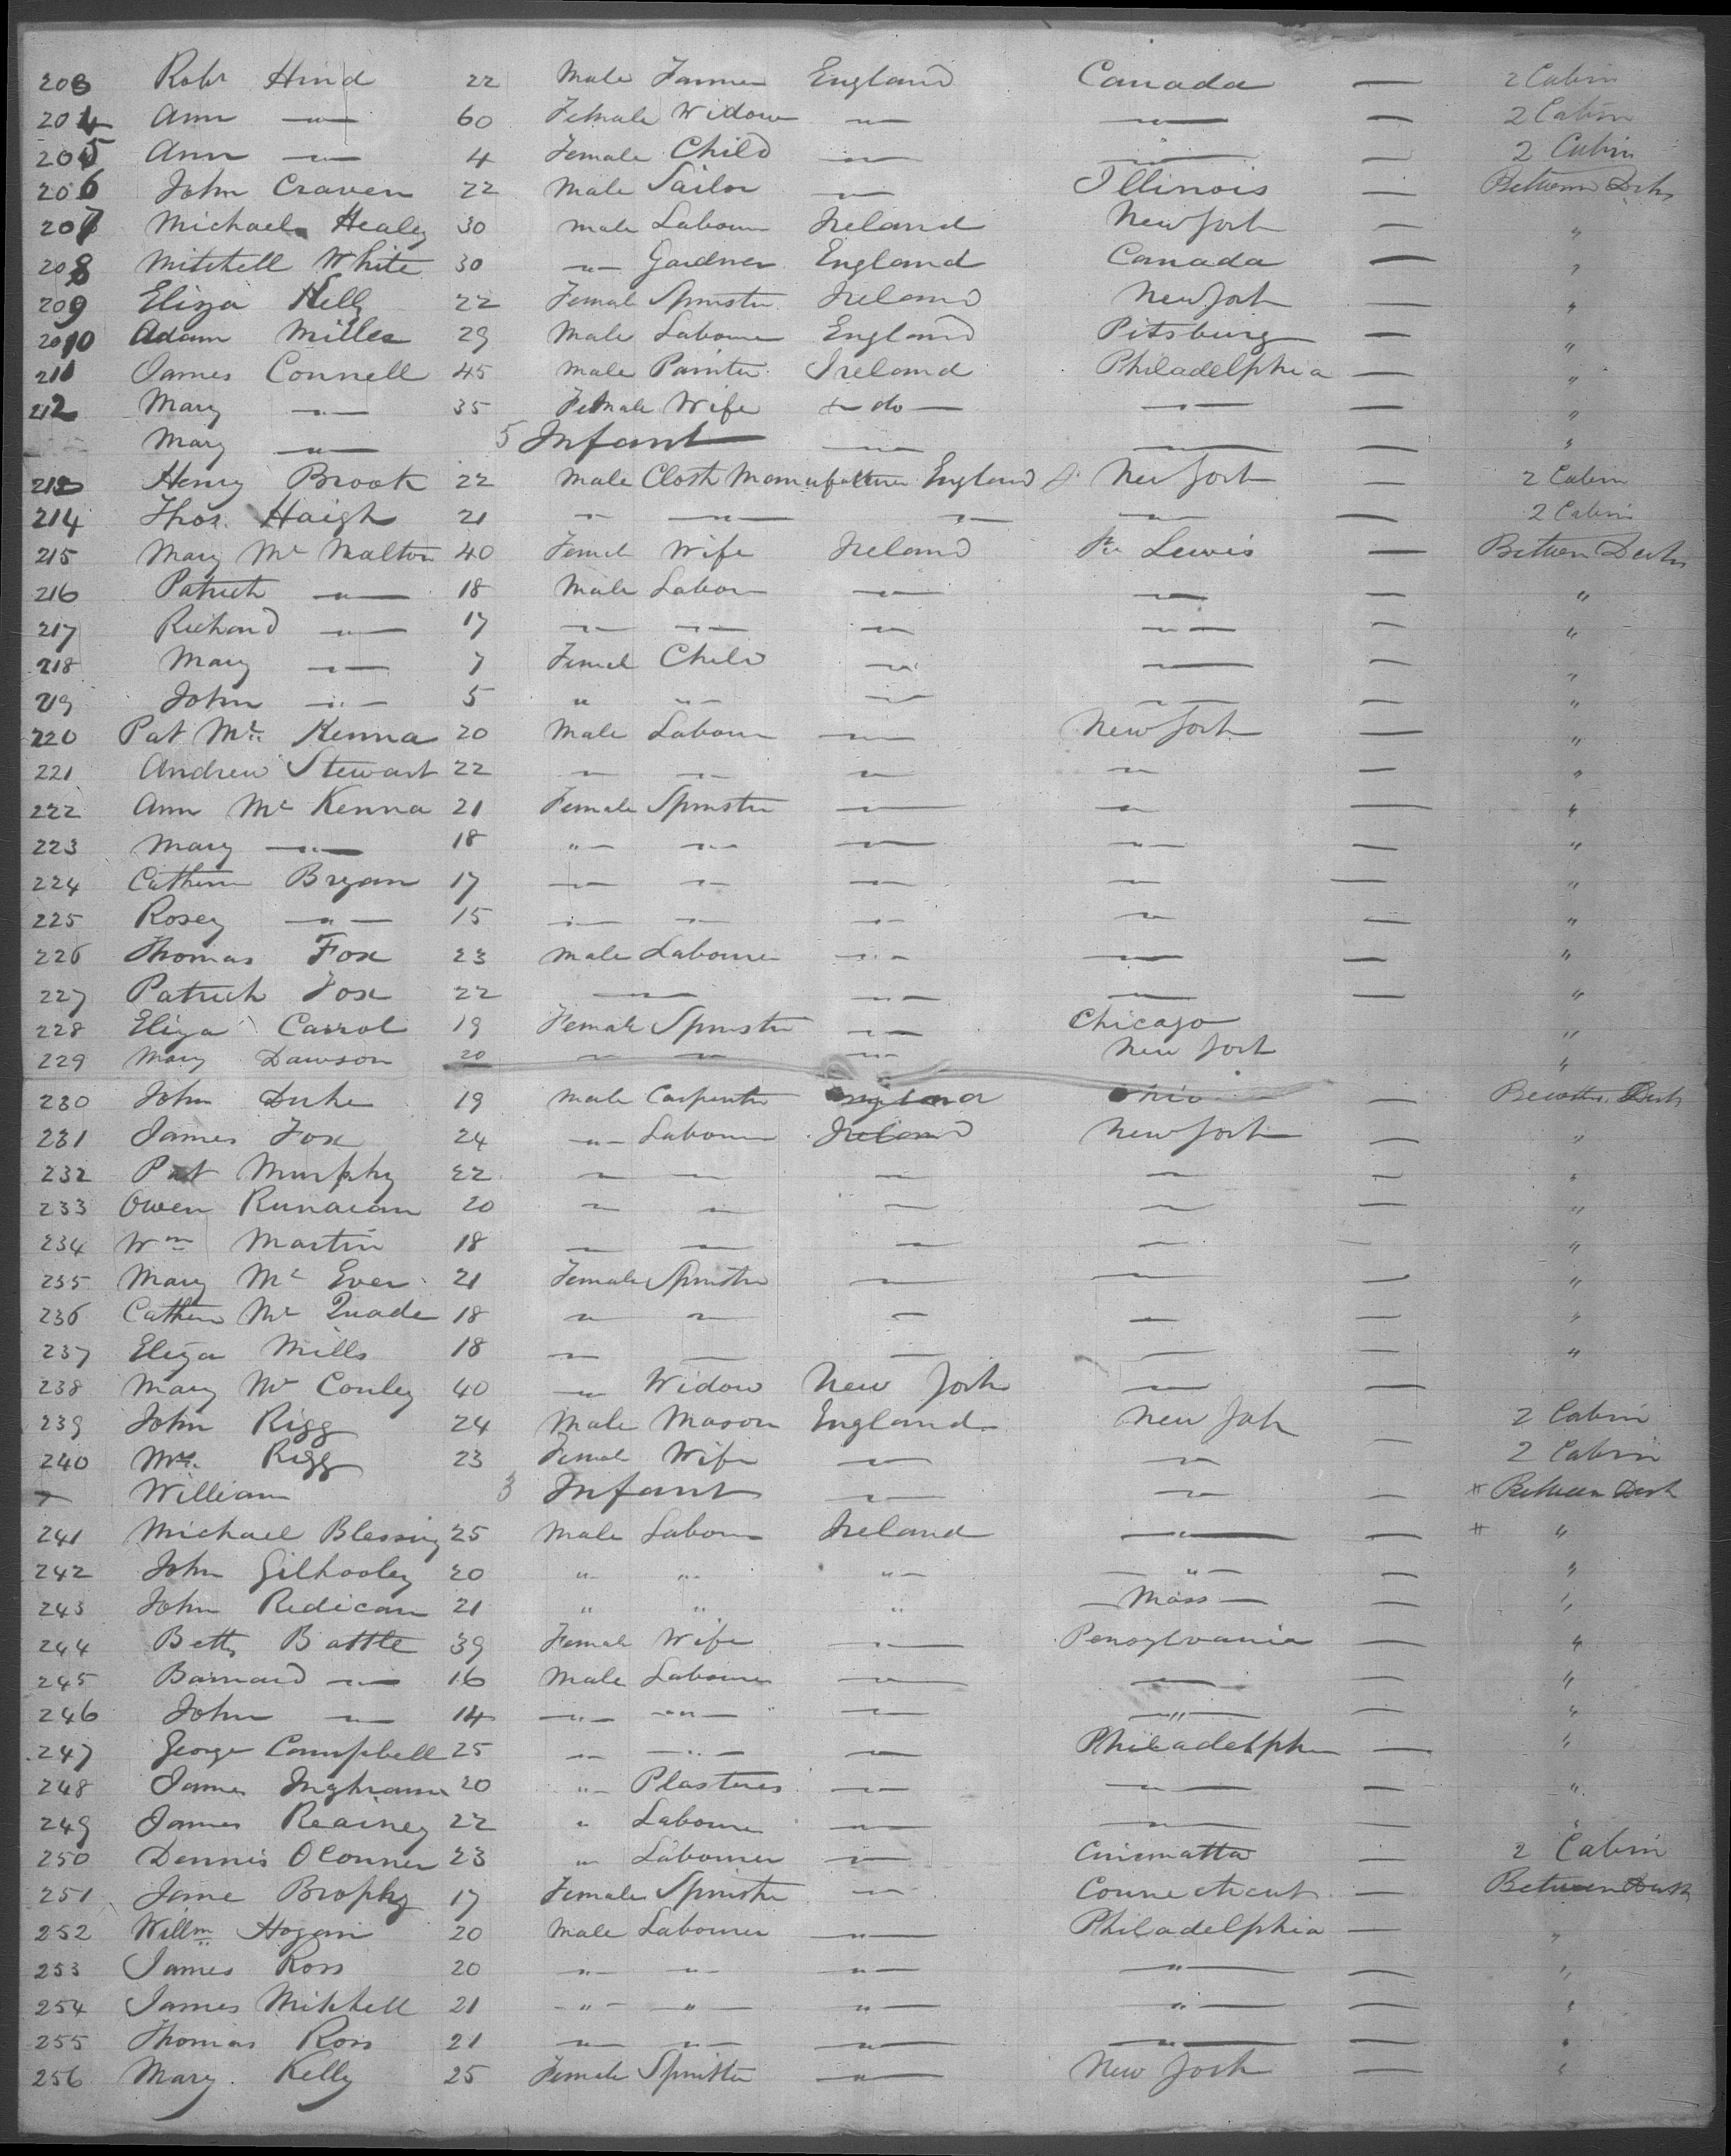 203 Robt Hind 22 Male Farmer England Canada — 2 Cabin
204 Ann —"— 60 Female Widow —"— —"— — 2 Cabin
205 Ann —"— 4 Female Child —"— —"— — 2 Cabin
206 John Craven 22 Male Sailor —"— Illinois — Between Decks
207 Michael Healey 30 male Labour Ireland New York — "
208 Mitchell White 30 —"— Gardner England Canada — "
209 Eliza Kelly 22 Female Spinster Ireland New York — "
2010 Adam Miller 29 Male Labour England Pitsburg — "
211 James Connell 45 Male Painter Ireland Philadelphia — "
212 Mary —"— 35 Female Wife — do — —"— — "
Mary —"— 5 Infant —"— —"— — "
213 Henry Brook 22 Male Cloth Manufacturer England New York — 2 Cabin
214 Thos. Haigh 21 —"— —"— —"— —"— — 2 Cabin
215 Mary Mc 40 Female Wife Ireland St Lewis — Between Decks
216 Patrick —"— 18 Male Labour —"— —"— — "
217 Richard —"— 17 —"— —"— —"— —"— — "
218 Mary —"— 7 Female Child —"— —"— — "
219 John —"— 5 " —"— —"— —"— — "
220 Pat Mc Kenna 20 Male Labour —"— New York — "
221 Andrew Stewart 22 —"— —"— —"— —"— — "
222 Ann Mc Kenna 21 Female Spinster —"— —"— — "
223 Mary —"— 18 "— —"— —"— —"— — "
224 Cathern Bryan 17 —"— —"— —"— —"— — "
225 Rosey —"— 15 —"— —"— —"— —"— — "
226 Thomas Fox 23 Male Labourer —"— —"— — "
227 Patrick Fox 22 —"— —"— —"— — "
228 Eliza Carrol 19 Female Spinster —"— Chicago "
229 Mary Dawson 20 —"— —"— —"— New York "
230 John Duke 19 Male Carpenter England Ohio — Decks
231 James Fox 24 —"— Labour Ireland New York — "
232 Pat Murphy 22 —"— —"— —"— —"— — "
233 Owen 20 —"— —"— —"— —"— — "
234 Wm Martin 18 —"— —"— —"— —"— — "
235 Mary Mc Ever 21 Female Spinster —"— —"— — "
236 Cathern Mc Quade 18 —"— —"— —"— —"— — "
237 Eliza Mills 18 —"— —"— —"— —"— — "
238 Mary Mc Conley 40 —"— Widow New York —"— —
239 John Rigg 24 Male Mason England New York — 2 Cabin
240 Mrs. Rigg 23 Female Wife —"— —"— 2 Cabin
William 3 Infant —"— —"— — # Between Deck
241 Michael Blessing 25 Male Labour Ireland —"— — # "
242 John Gilhooley 20 "— "— "— —"— — "
243 John Redican 21 " " " — Mass — — "
244 Betty Battle 39 Female Wife —"— Pensylvania — "
245 Barnard —"— 16 Male Labourer —"— —"— — "
246 John —"— 14 —"— —"— —"— —"— — "
247 George Campbell 25 —"— —"— —"— Philadelphia — "
248 James Inghram 20 "— Plasterer —"— —"— — "
249 James Reainey 22 " Labourer —"— —"— — "
250 Dennis OConner 23 " Labourer —"— — 2 Cabin
251 Jane Brophy 17 Female Spinster —"— Connecticut — Between Decks
252 Willm Hogan 20 Male Labourer —"— Philadelphia — "
253 James Ross 20 —"— —"— —"— —"— — "
254 James Mitchell 21 —"— —"— —"— —"— — "
255 Thomas Ross 21 —"— —"— —"— —"— — "
256 Mary Kelly 25 Female Spinster —"— New York — "